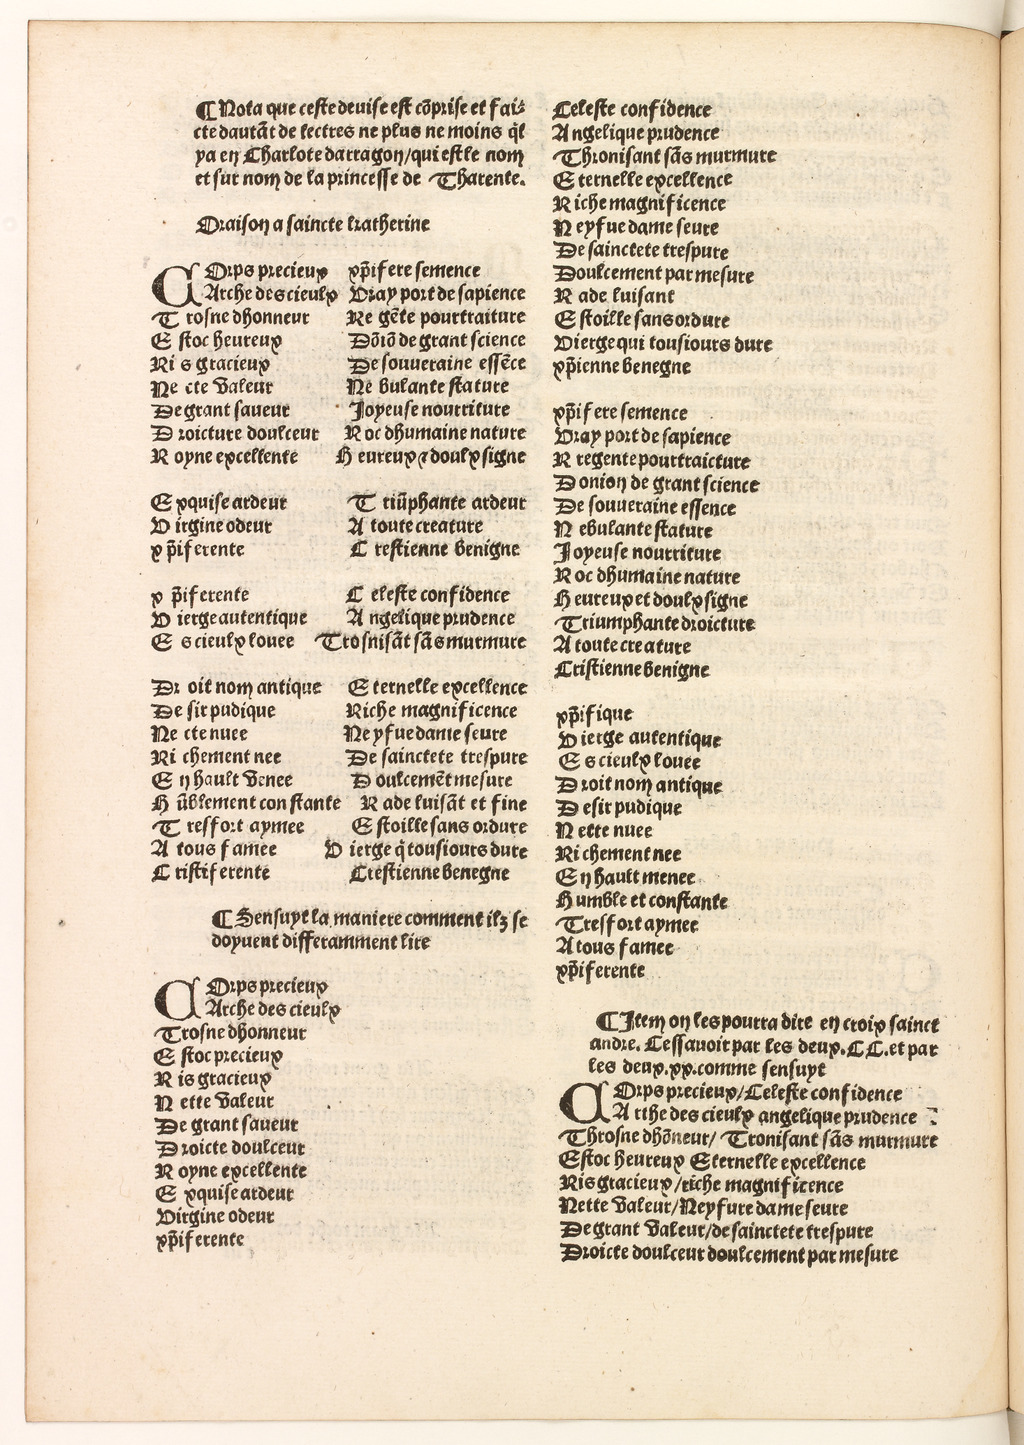 ¶ Nota que ceste deuise est cõprise et fai-
cte dautãt de lectres ne plus ne moins q̃l
ya en Charlote darragon/qui est le nom
et sur nom de la princesse de Tharente.
Oraison a saincte katherine
COrps precieux xp̃ifere semence
Arche des cieulx Vray port de sapience
Trosne dhonneur Re gẽte pourtraiture
Estoc heureux Dõiõ de grant science
Ris gracieux De souueraine essẽce
Necte valeur Nebulante stature
De grant saueur Joyeuse nourriture
Droicture doulceur Roc dhumaine nature
Royne excellente Heureux & doulx signe
Exquise ardeur Triũphante ardeur
Virgine odeur A toute creature
xp̃iferente Crestienne benigne
xp̃iferente Celeste confidence
Vierge autentique Angelique prudence
Es cieulx louee Trosnisãt sãs murmure
Droit nom antique Eternelle excellence
Desir pudique Riche magnificence
Necte nuee Neyfue dame seure
Richement nee De sainctete trespure
En hault venee Doulcemẽt mesure
Hũblement constante Rade luisãt et fine
Tresfort aymee Estoille sans ordure
A tous famee Vierge q̃ tousiours dure
Cristiferente Crestienne benegne
¶ Sensuyt la maniere comment ilz se
doyuent differamment lire
COrps precieux
Arche des cieulx
Trosne dhonneur
Estoc precieux
Ris gracieux
Nette valeur
De grant saueur
Droicte doulceur
Royne excellente
Exquise ardeur
Virgine odeur
xp̃iferente
Celeste confidence
Angelique prudence
Thronisant sãs murmure
Eternelle excellence
Riche magnificence
Neyfue dame seure
De sainctete trespure
Doulcement par mesure
Rade luisant
Estoille sans ordure
Vierge qui tousiours dure
xp̃ienne benegne
xp̃ifere semence
Vray port de sapience
Rregente pourtraicture
Donion de grant science
De souueraine essence
Nebulante stature
Joyeuse nourriture
Roc dhumaine nature
Heureux et doulx signe
Triumphante droicture
A toute creature
Cristienne benigne
xp̃ifique
Vierge autentique
Es cieulx louee
Droit nom antique
Desir pudique
Nette nuee
Richement nee
En hault menee
Humble et constante
Tresfort aymee
A tous famee
xp̃iferente
¶ Item on les pourra dire en croix sainct
andre. Cessauoir par les deux.CC.et par
les deux.xx.comme sensuyt
COrps precieux/Celeste confidence
Arche des cieulx angelique prudence
Throsne dhõneur/ Tronisant sãs murmure
Estoc heureux Eternelle excellence
Ris gracieux/riche magnificence
Nette valeur/Neyfure dame seure
De grant valeur/de sainctete trespure
Droicte doulceur doulcement par mesure